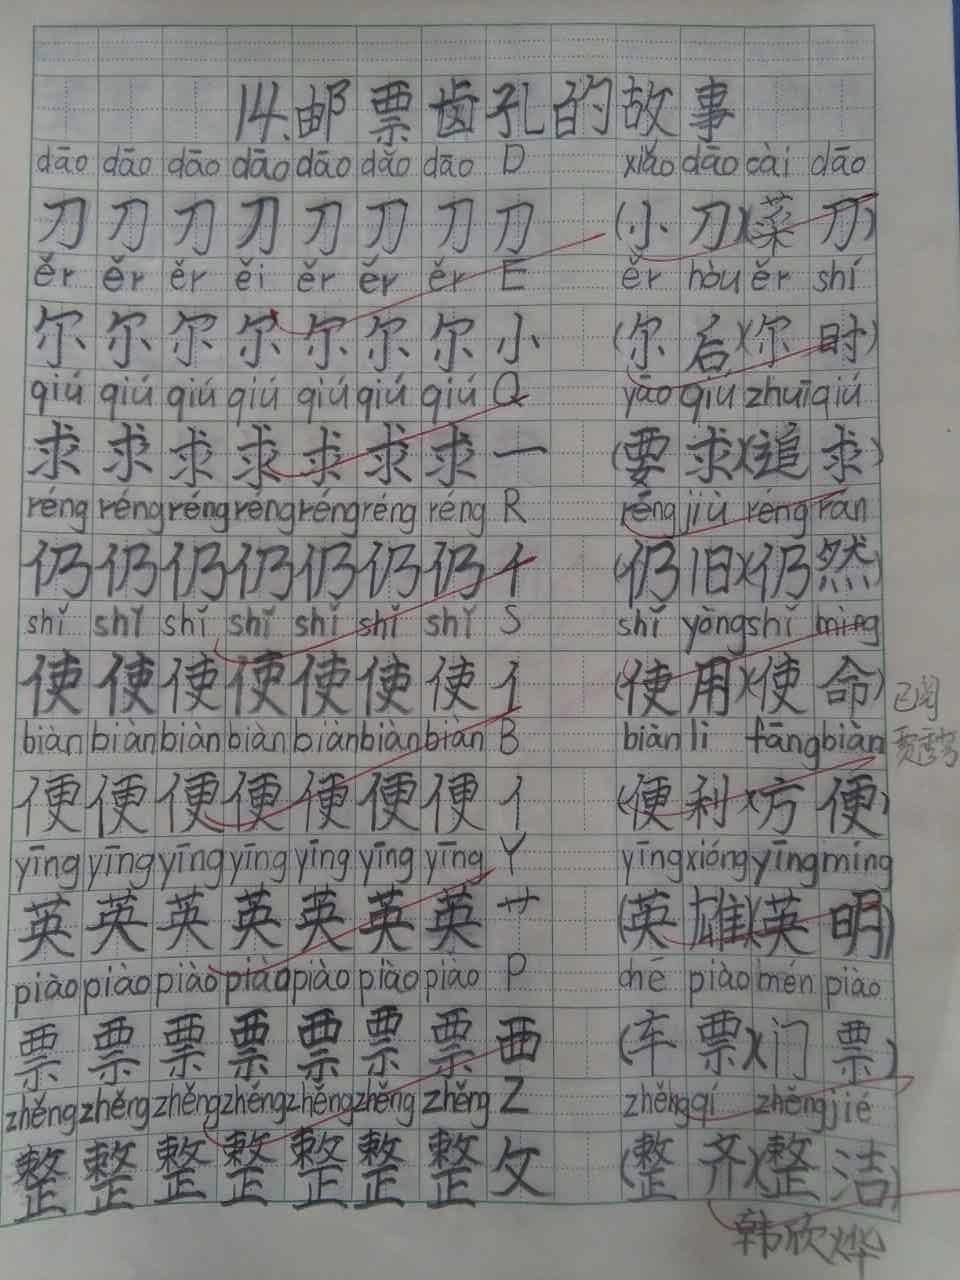 14.邮票齿孔的故事
dāo dāo dāo dāo dāo dāo dāo D xiǎo dāo cài dāo
刀 刀 刀 刀 刀 刀 刀 刀 (小刀)(菜刀)
ěr ěr ěr ěi ěr ěr ěr E ěr hòu ěr shí
尔 尔 尔 尔 尔 尔 尔 小 (尔后)(尔时)
qiú qiú qiú qiú qiú qiú qiú Q yāo qiú zhuī qiú
求 求 求 求 求 求 求 一 (要求)(追求)
réng réng réng réng réng réng réng R réng jiù réng rán
仍 仍 仍 仍 仍 仍 仍 亻 (仍旧)(仍然)
shǐ shǐ shǐ shǐ shǐ shǐ shǐ S shǐ yòng shǐ mìng
使 使 使 使 使 使 使 亻 (使用)(使命)
已阅
biàn biàn biàn biàn biàn biàn biàn B biàn lì fāng biàn
便 便 便 便 便 便 便 亻 (便利)(方便)
yīng yīng yīng yīng yīng yīng yīng Y yīng xióng yīng míng
英 英 英 英 英 英 英 艹 (英雄)(英明)
piào piào piào piào piào piào piào P chē piào mén piào
票 票 票 票 票 票 票 覀 (车票)(门票)
zhěng zhěng zhěng zhěng zhěng zhěng zhěng Z zhěng qí zhěng jié
整 整 整 整 整 整 整 攵 (整齐)(整洁)
韩欣烨